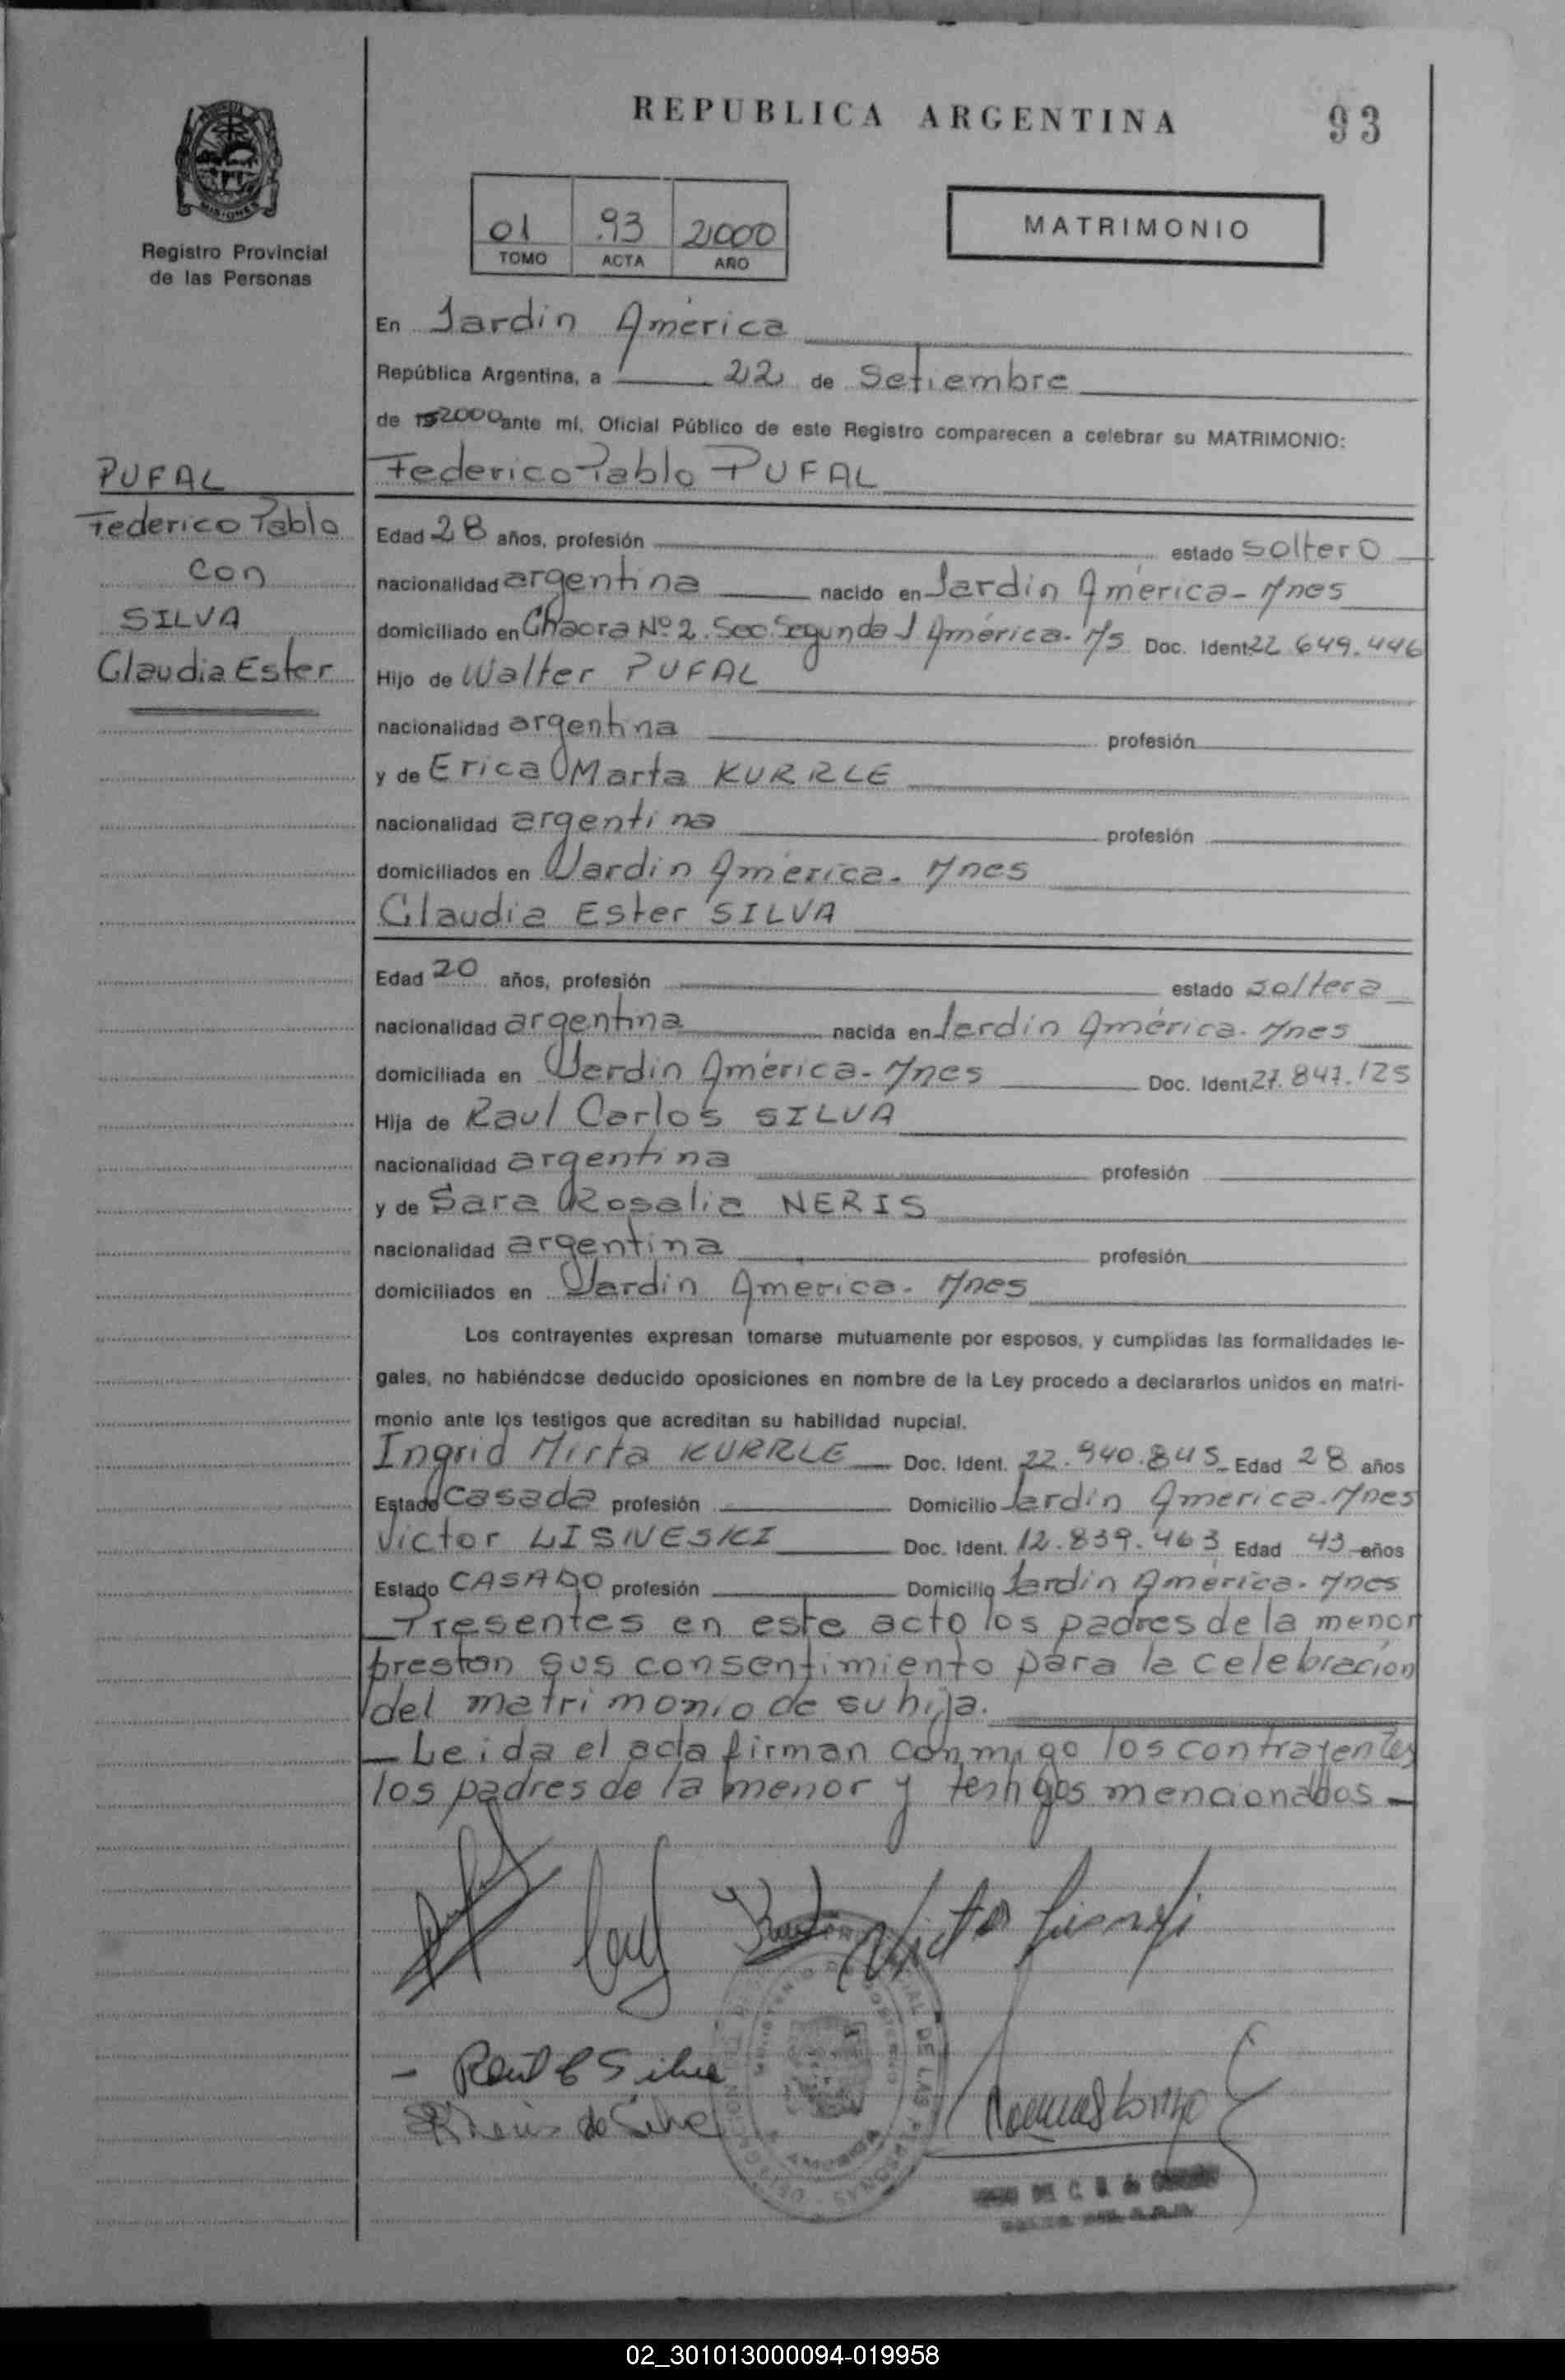 REPUBLICA ARGENTINA
93
MISIONES
Registro Provincial
de las Personas
01 93 2000
TOMO ACTA AÑO
MATRIMONIO
En Jardin América
República Argentina, a 22 de Setiembre
de 2000 ante mí, Oficial Público de este Registro comparecen a celebrar su MATRIMONIO:
PUFAL
Federico Pablo
con
SILVA
Claudia Ester
Federico Pablo PUFAL
Edad 28 años, profesión estado soltero
nacionalidad argentina nacido en Jardin América - Mnes
domiciliado en Chacra Nº 2. Sec. Segunda J América - M/s Doc. Ident. 22.649.446
Hijo de Walter PUFAL
nacionalidad argentina profesión
y de Erica Marta KURRLE
nacionalidad argentina profesión
domiciliados en Jardin América. Mnes
Claudia Ester SILVA
Edad 20 años, profesión estado soltera
nacionalidad argentina nacida en Jardin América. Mnes
domiciliada en Jardin América - Mnes Doc. Ident. 27.847.125
Hija de Raul Carlos SILVA
nacionalidad argentina profesión
y de Sara Rosalia NERIS
nacionalidad argentina profesión
domiciliados en Jardin America. Mnes
Los contrayentes expresan tomarse mutuamente por esposos, y cumplidas las formalidades le-
gales, no habiéndose deducido oposiciones en nombre de la Ley procedo a declararlos unidos en matri-
monio ante los testigos que acreditan su habilidad nupcial.
Ingrid Mirta KURRLE Doc. Ident. 22.940.845 Edad 28 años
Estado casada profesión Domicilio Jardin America. Mnes
Victor LISNESKI Doc. Ident. 12.839.463 Edad 43 años
Estado CASADO profesión Domicilio Jardin America. Mnes
Presentes en este acto los padres de la menor
prestan sus consentimiento para la celebración
del matrimonio de su hija.
Leida el acta firman conmigo los contrayentes
los padres de la menor y testigos mencionados
Raul C Silva
de Silva
DE LAS PERSONAS
02_301013000094-019958